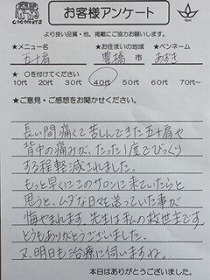 COCONUTS
お客様アンケート
spa
より良い品質・他、掲載にご協力お願いします。
★メニュー名 ★お住まいの地域 ★ペンネーム
五十肩 豊橋 市
★○を付けてください
10代 20代 30代 40代 50代 60代 70代 80代
★ご意見・ご感想をお聞かせください。
長い間痛くて苦しんできた五十肩や
背中の痛みが、たった1度でびっくり
する程軽減されました。
もっと早くにこのサロンに来ていたらと
思うと、ムダな日々を送っていた事が
悔やまれます。先生は私の救世主です。
どうもありがとうございました。
又、明日も治療に伺いますね。
本日はありがとうございました。